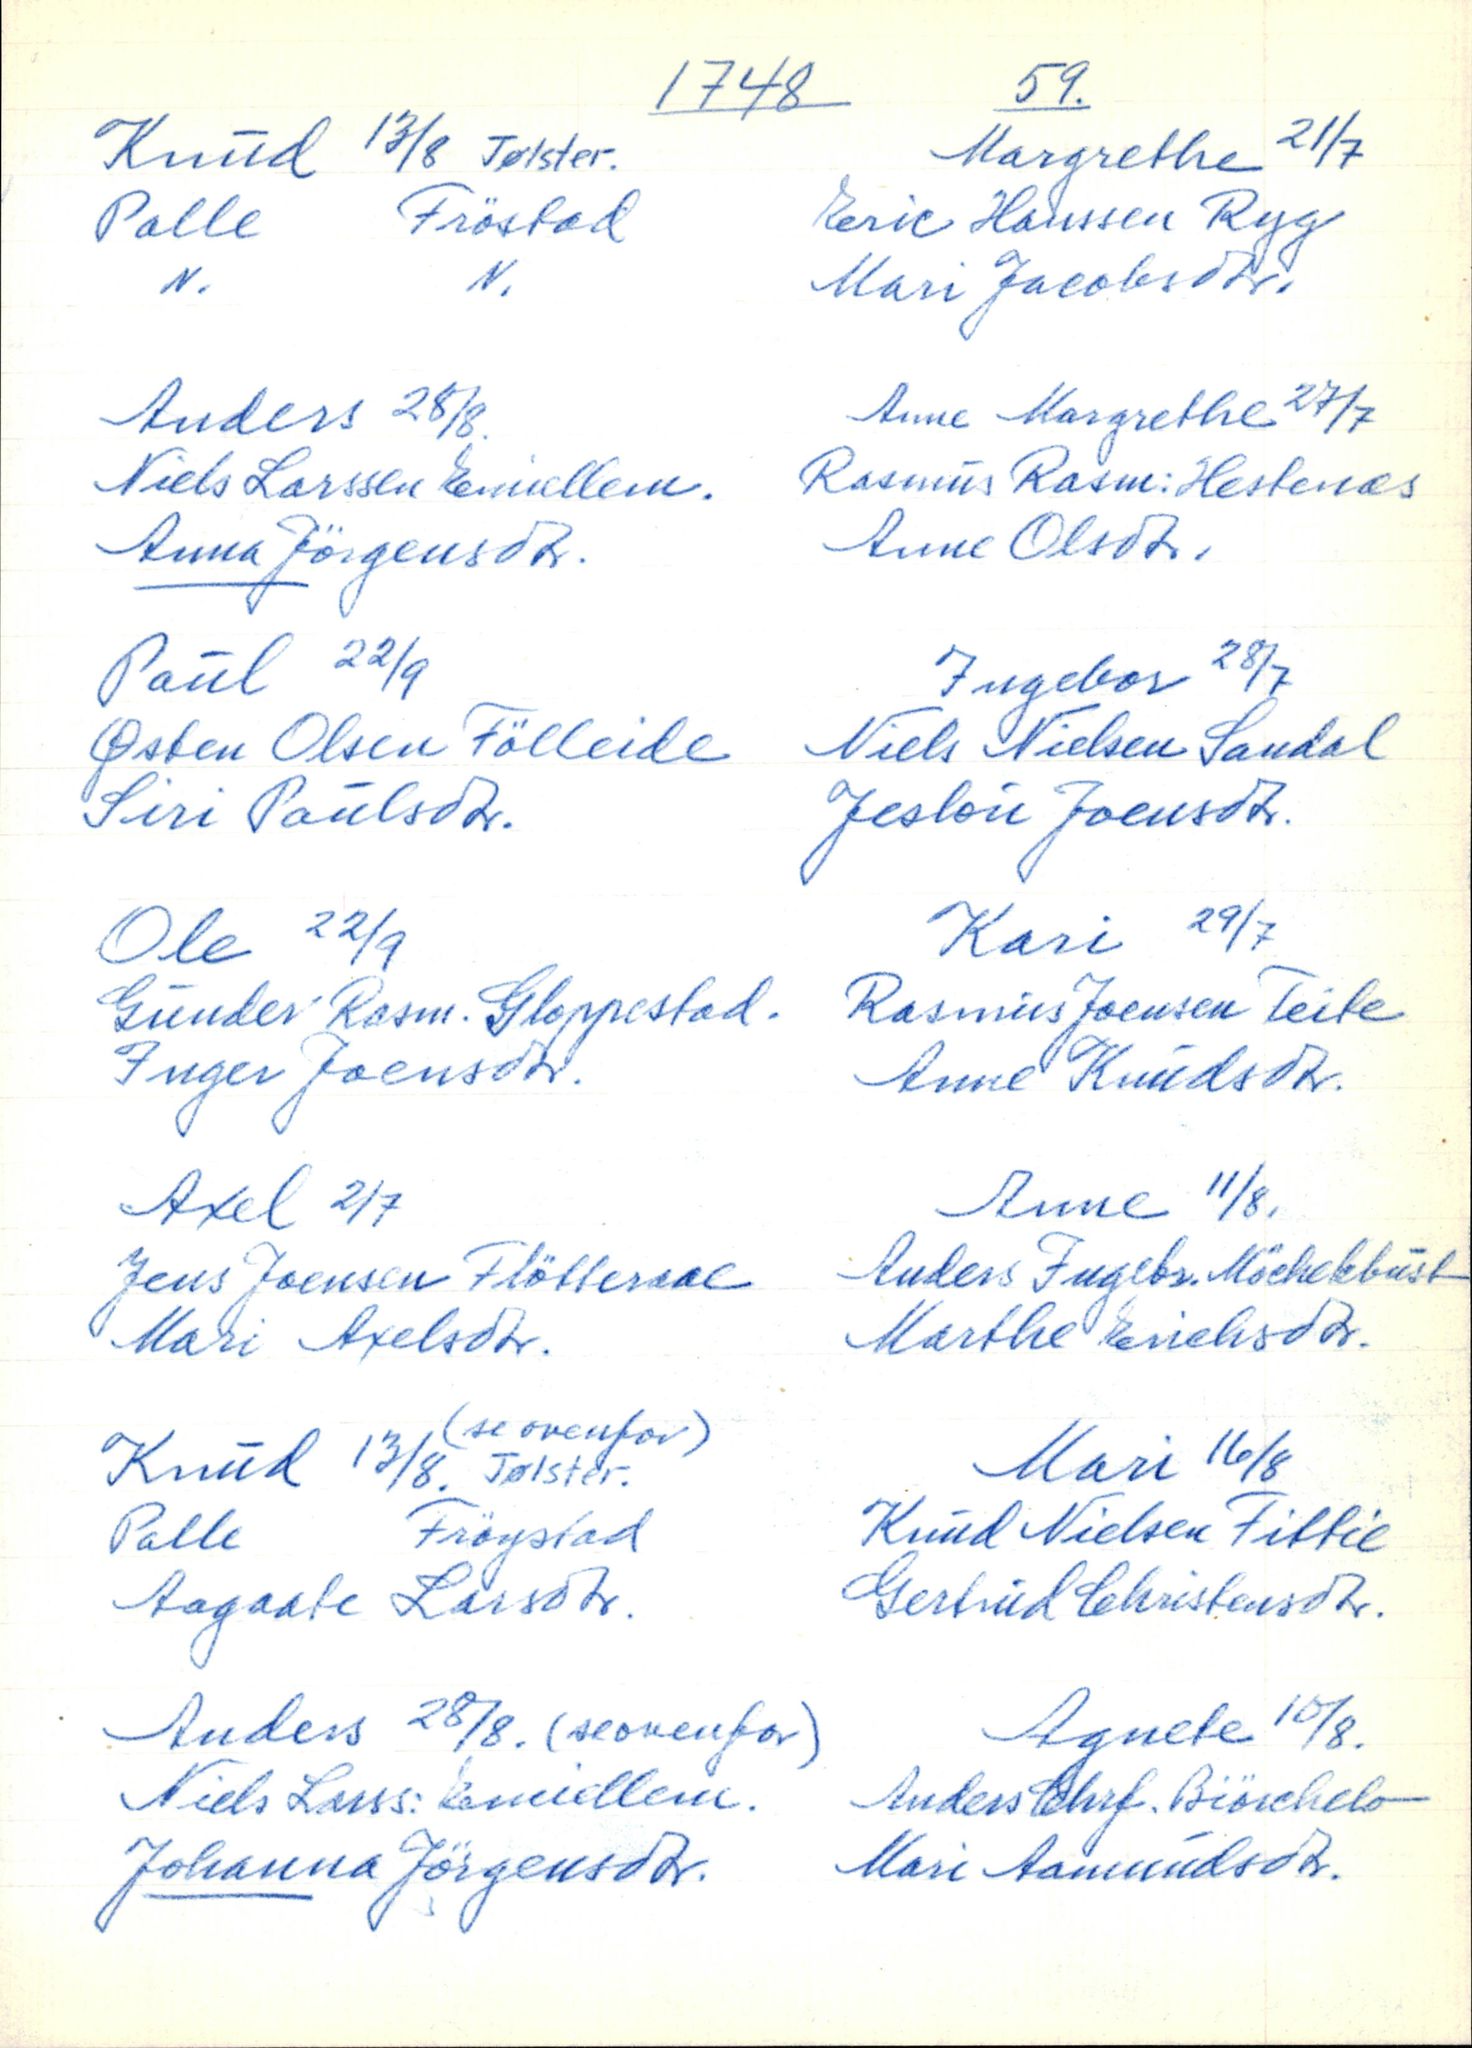 1748 59.
Knud 13/8 Jølster.
Palle Fröstad
N. N.
Anders 28/8.
Niels Larssen Emiellem.
Anna Jörgensdtr.
Paul 22/9
Østen Olsen Fölleide
Siri Paulsdtr.
Ole 22/9
Gunder Rasm. Gloppestad.
Inger Joensdtr.
Axel 2/7
Jens Joensen Flötteraae
Mari Axelsdtr.
(se ovenfor)
Knud 13/8. Jølster.
Palle Fröystad
Aagaate Larsdtr.
Anders 28/8. (se ovenfor)
Niels Larss: Emiellem.
Johanna Jörgensdtr.
Margrethe 21/7
Eric Hanssen Ryg
Mari Jacobsdtr.
Anne Margrethe 27/7
Rasmus Rasm: Hestenæs
Anne Olsdtr.
Ingebor 28/7
Niels Nielsen Sandal
Joensdtr.
Kari 29/7
Rasmus Joensen Teite
Anne Knudsdtr.
Anne 11/8.
Anders Ingebr. Möchelbust
Marthe Erichsdtr.
Mari 16/8
Knud Nielsen Fittie
Gertrud Christensdtr.
Agnete 10/8.
Anders Chrf. Biörchelo
Mari Aamundsdtr.